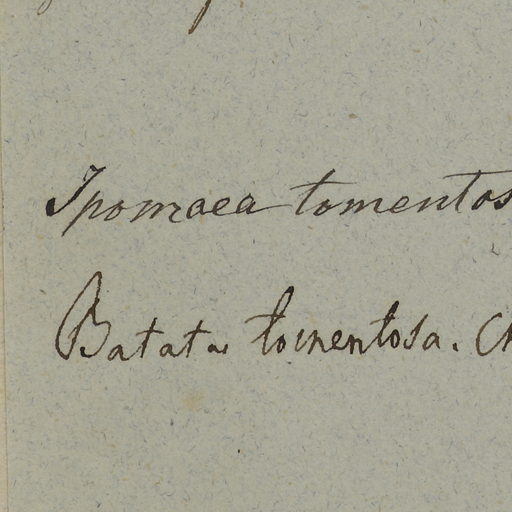 Ipomaea tomentos
Batatas tomentosa. Ch